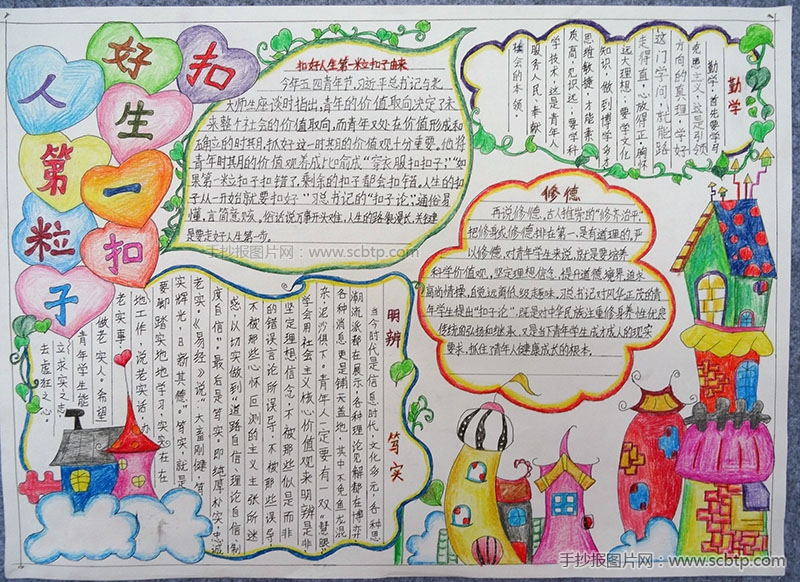 扣好人生第一粒扣子
扣好人生第一粒扣子由来
今年五四青年节,习近平总书记与老
大师生座谈时指出,青年的价值取向决定了未
来整个社会的价值取向,而青年又处在价值形成和
确立的时期,抓好这一时期的价值观十分重要。他将
青年时期的价值观养成比喻成“穿衣服扣扣子”“如
果第一粒扣子扣错了,剩余的扣子都会扣错,人生的扣
子从一开始就要扣好”习总书记的“扣子论”,通俗易
懂,言简意赅。俗话说万事开头难,人生的路很漫长,关键
是要走好人生第一步。
勤学
勤学,首先要学习
克思主义,这是引领
方向的真理,学好
这门学问,就能路
走得直,心放得正,胸怀
远大理想;要学文化
知识,做到博学多才
思维敏捷,才能素
质高,见识远;要学科
学技术,这是青年人
服务人民、奉献
社会的本领
修德
再说修德,古人推崇的“修齐治平”
把修身或修德排在第一,是有道理的。严
以修德,对青年学生来说,就是要培养
科学价值观,坚定理想信念,提升道德境界,追求
高尚情操,自觉远离低级趣味。习总书记对风华正茂的青
年学生提出“扣子论”,既是对中华民族注重修养性优良
传统的弘扬和继承,又是当下青年学生成才成人的现实
要求,抓住了青年人健康成长的根本。
明辨
笃实
当今时代是信息时代,文化多元,各种思
潮流派都在展示,各种理论见解都在博弈
各种消息更是铺天盖地,其中不免鱼龙混
杂,泥沙俱下。青年人一定要有一双“慧眼”
学会用社会主义核心价值观来明辨是非,
坚定理想信念,不被那些似是而非
的错误言论所误导,不被那些误导,
不被那些心怀叵测的主义主张所迷
惑,以切实做到“道路自信、理论自信、制
度自信”。最后是笃实,即纯厚朴实,忠诚
老实。《易经》说“大畜刚健,笃
实辉光,日新其德。”笃实,就是
要脚踏实地地学习,实实在在
地工作,说老实话,办
老实事,
做老实人。希望
青年学生能
立求实之志
去虚狂之心。
手抄报图片网:www.scbtp.com
手抄报图片网:www.scbtp.com